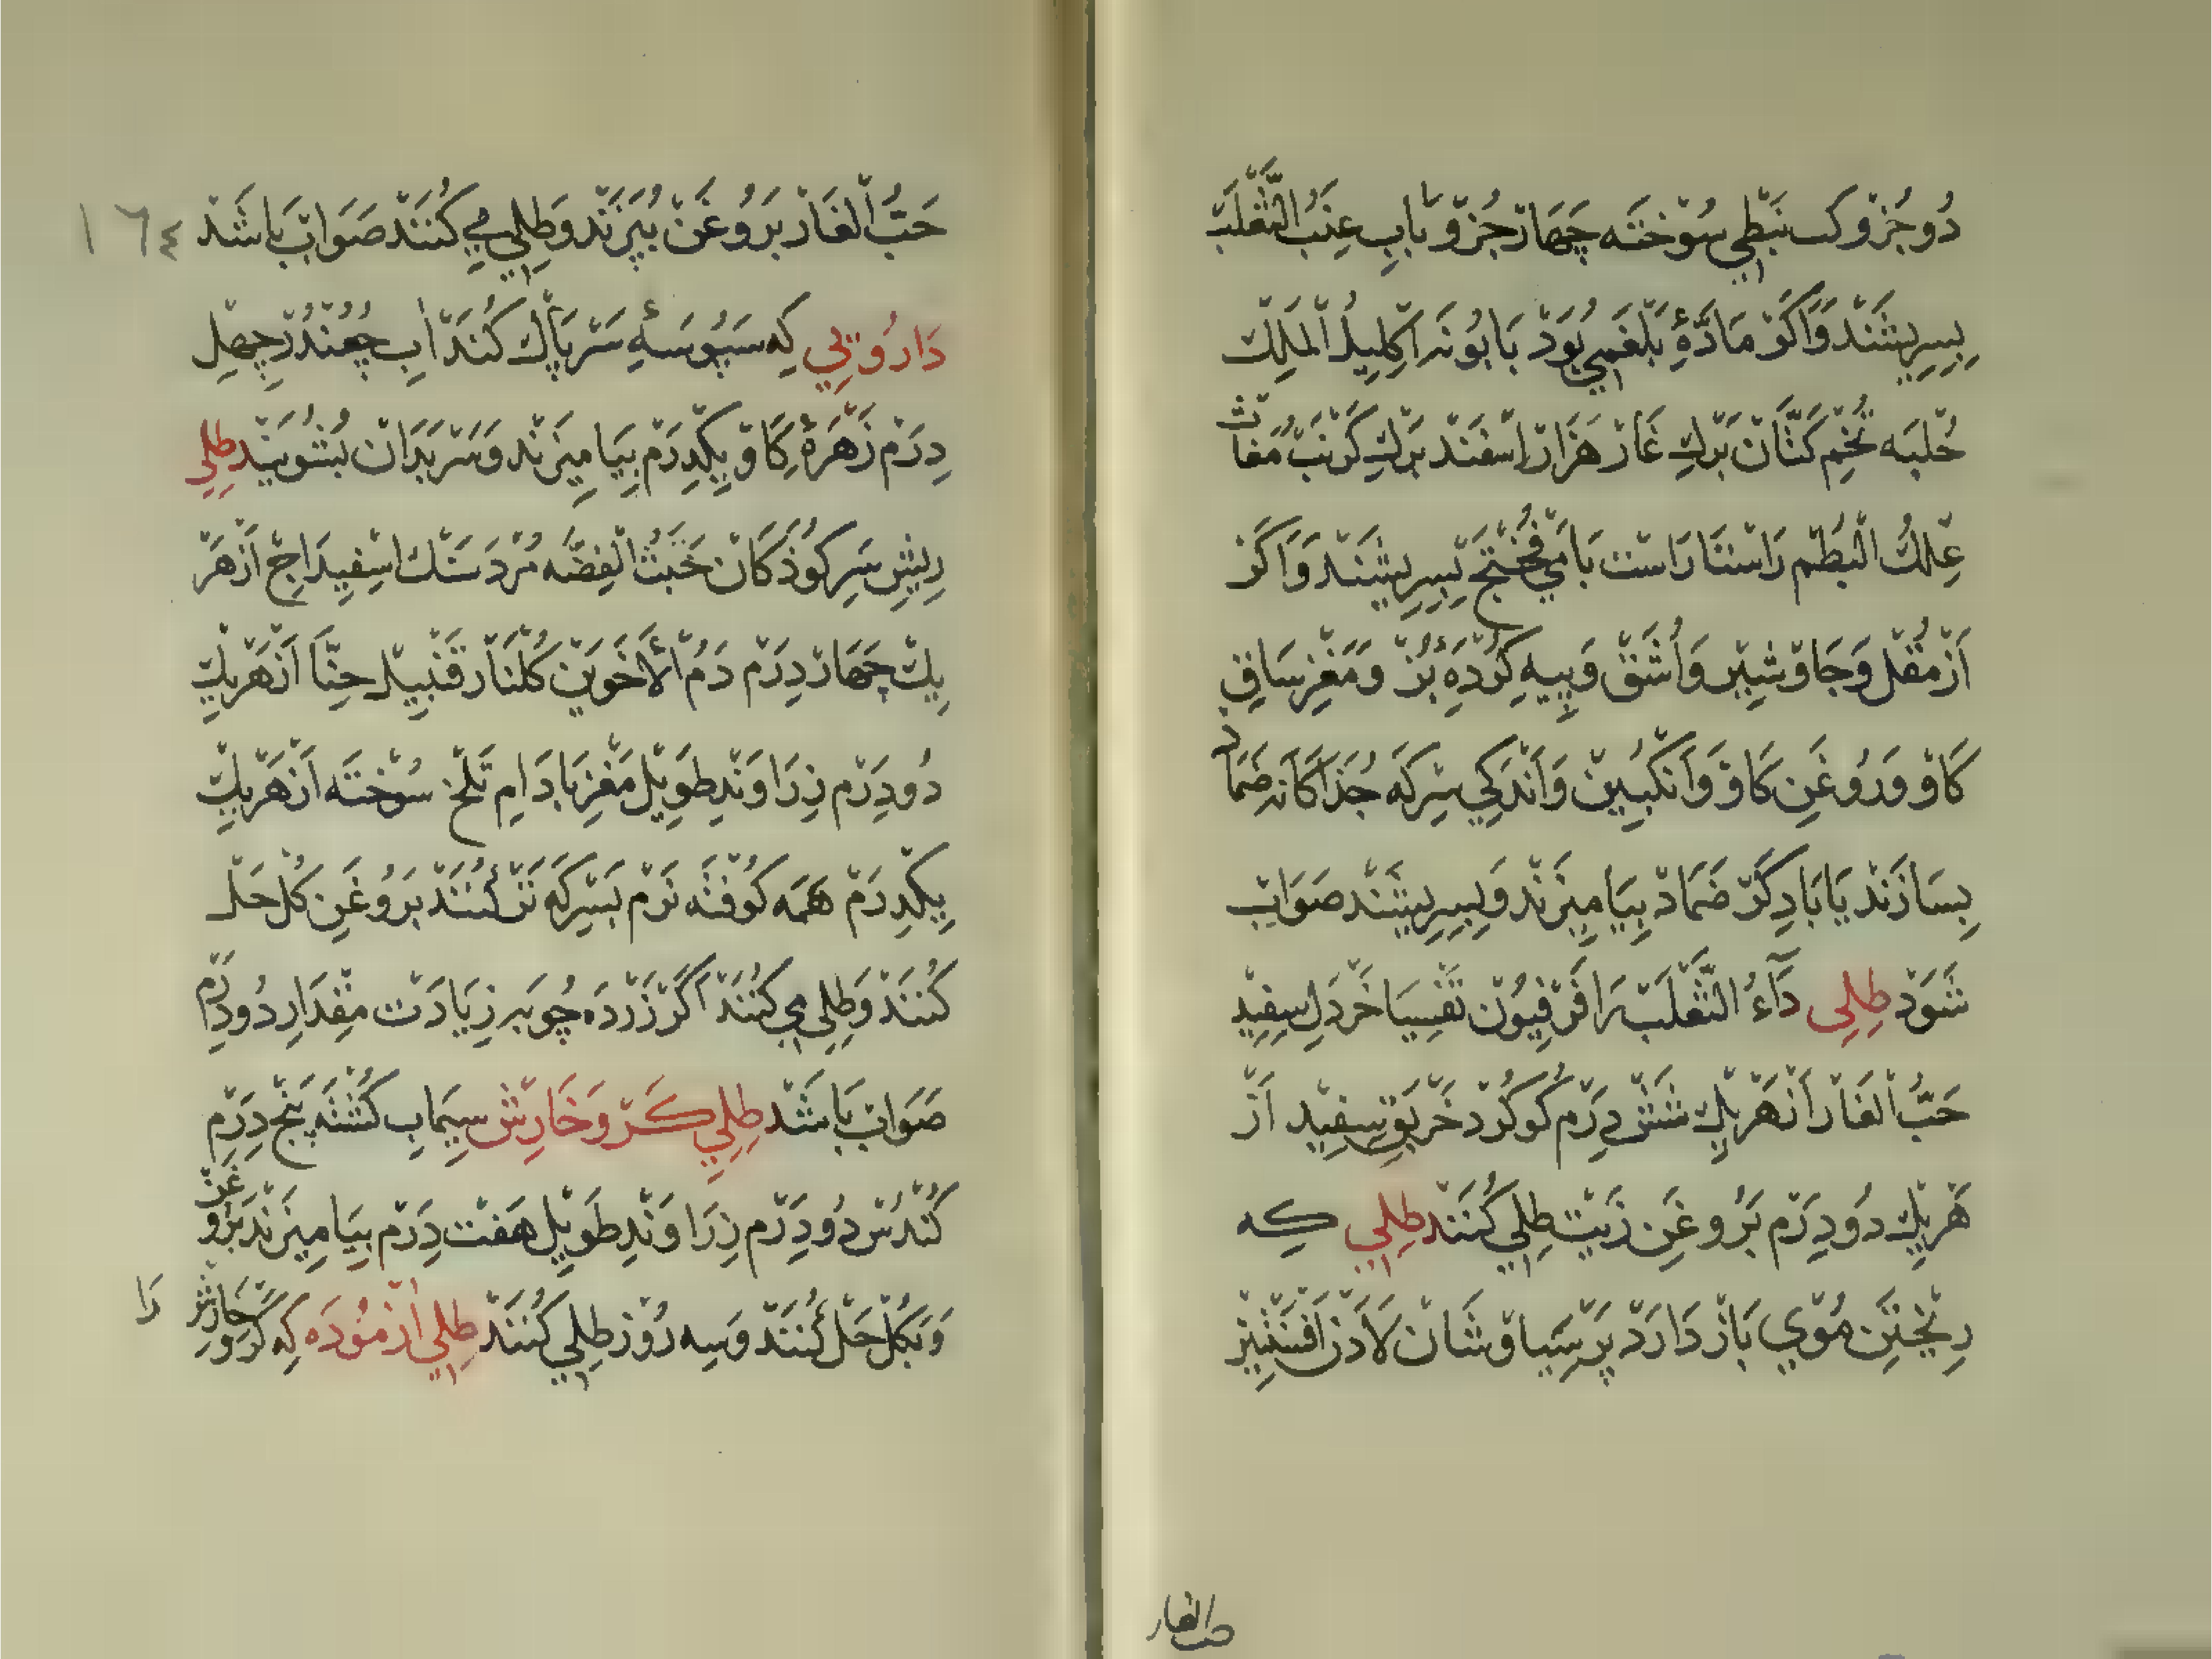 دُو جُزْوْ كبِ نَبَطِي سُوْخْتَه چَهَارْ جُزْوْ بَابِ عِنَبُ الثَّعْلَبْ
بِسِرِيشَنْد وَاَكَرْ مَادَّهٔ بَلْغَمِي بُوَدْ بَابُونَه اِكْلِيلُ الْمَلِكْ
حُلْبَه تُخْمِ كَتَّانْ بَرْكِ غَارْ هَزَارْ اِسْفَنْد بَرْكِ كَرْنَبْ مُغَاثْ
عِلْكُ الْبُطْمْ رَاسْتَا رَاسْت بَا مَيْفُخْتَجْ بِسِرِيشَنْد وَاَكَرْ
اَزْ مُقْلْ وَجَاوْشِيْر وَاُشَقْ وَپِيهِ كُرْدَهٔ بُزْ وَمَغْزِ سَاقِ
كَاوْ وَرَوُغَنِ كَاوْ وَاَنْكَبِيْنْ وَاَنْدَكِي سِرْكَه جُذَاكَانَه ضَمَادْ
بِسَازَنْد يَا بَادِكَرْ ضَمَادْ بِيَامِيزَنْد وَبِسِرِيشَنْد صَوَابْ
شَوَدْ طِلِي دَآءُ الثَّعْلَبْ رَا فَرْفِيُوْن تَفْسِيَا خَرْدَلِ سِفِيْد
حَبُّ الْغَارْ اَزْ هَرْيِكْ شَشْ دِرَمْ كُوكُرْد خَرْبَقِ سِفِيْد اَزْ
هَرْيِكْ دُو دِرَمْ بَرُوغَنِ زَيْتْ طِلِي كُنَنْد طِلِي كِه
رِيخْتَنِ مُوْي بَازْ دَارَدْ پَرْ سِيَاوْشَانْ لَادَنْ اَفْسَنْتِيْن
حب الغار
حَبُّ الْغَارْ بَرَوُغَنْ بِپَزَنْد وَطِلِي مِي كُنَنْد صَوَابْ بَاشَدْ ١٦٤
دَارُوِيي كِه سَبُوسَهٔ سَرْ پَاكْ كُنَدْ اَبِ چُغُنْدُرْ چِهِلْ
دِرَمْ زَهْرَهٔ كَاوْ يِكْدِرَمْ بِيَامِيزَنْد وَسَرْ بَدَانْ بُشُويَنْد طِلِي
رِيشِ سَرِ كُوذَكَانْ خَبَثُ الْفِضَّه مُرْدَسَنْك اِسْفِيدَاجْ اَزْهَرْ
يِكْ چَهَارْ دِرَمْ دَمُ الْاَخَوَيْنْ كُلْنَارْ قَنْبِيْلْ حِنَّا اَزْهَرْيِكْ
دُو دِرَمْ زِرَاوَنْدِ طَوِيْلْ مَغْزِ بَادَامِ تَلْخ سُوْخْتَه اَزْهَرْيِكْ
يِكْدِرَمْ هَمَه كُوفْتَه نَرْم بَسِرْكَه تَرْ كُنَنْد بَرَوُغَنِ كُلْ حَلْ
كُنَنْد وَطِلِي مِي كُنَنْد اَكَرْ زَرْدَه چُوبَه زِيَادَتْ مِقْدَارِ دُو دِرَمْ
صَوَابْ بَاشَدْ طِلِي كَرْ وَخَارِشْ سِيمَابِ كُشْتَه پَنْج دِرَمْ
كُنْدُسْ دُو دِرَمْ زِرَاوَنْدِ طَوِيْلْ هَفْت دِرَمْ بِيَامِيزَنْد بَرُوغَنْ
وَبَكُلْ حَلْ كُنَنْد وَسِه رُوْز طِلِي كُنَنْد طِلِي اَزْمُوْدَه كِه كَرْ وَخَارِشْ رَا